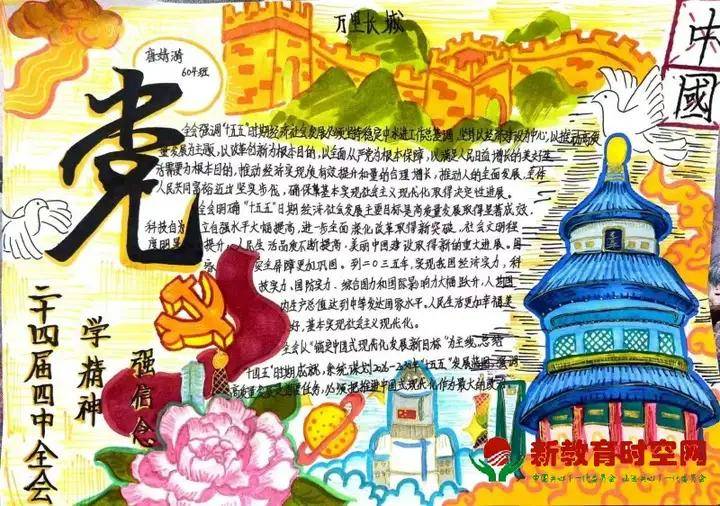 万里长城
中國
唐婧漪
604班
党
全会强调"十五五"时期经济社会发展必须坚持稳中求进工作总基调,坚持以经济建设为中心,以推动高质
量发展为主题,以改革创新为根本目的,以全面从严治党为根本保障,以满足人民日益增长的美好生
活需要为根本目的,推动经济实现质有效提升和量的合理增长,推动人的全面发展、全体
人民共同富裕迈出坚实步伐,确保基本实现社会主义现代化取得决定性进展。
全会明确"十五五"时期经济社会发展主要目标是高质量发展取得显著成效,
科技自立自强水平大幅提高,进一步全面深化改革取得新突破,社会文明程
度明显提升,人民生活品质不断提高,美丽中国建设取得新的重大进展,国
安全屏障更加巩固。到二〇三五年,实现我国经济实力、科
技实力、国防实力、综合国力和国际影响力大幅跃升,人均国
内生产总值达到中等发达国家水平,人民生活更加幸福美
好,基本实现社会主义现代化。
全会以"锚定中国式现代化发展新目标"为主线,总结
"十四五"时期成就,系统谋划2026-2030年"十五五"发展蓝图,强调
高质量发展是首要任务,必须把推进中国式现代化作为最大的政治。
二十四届四中全会
学精神
强信念
新教育时空网
中国关心下一代委员会